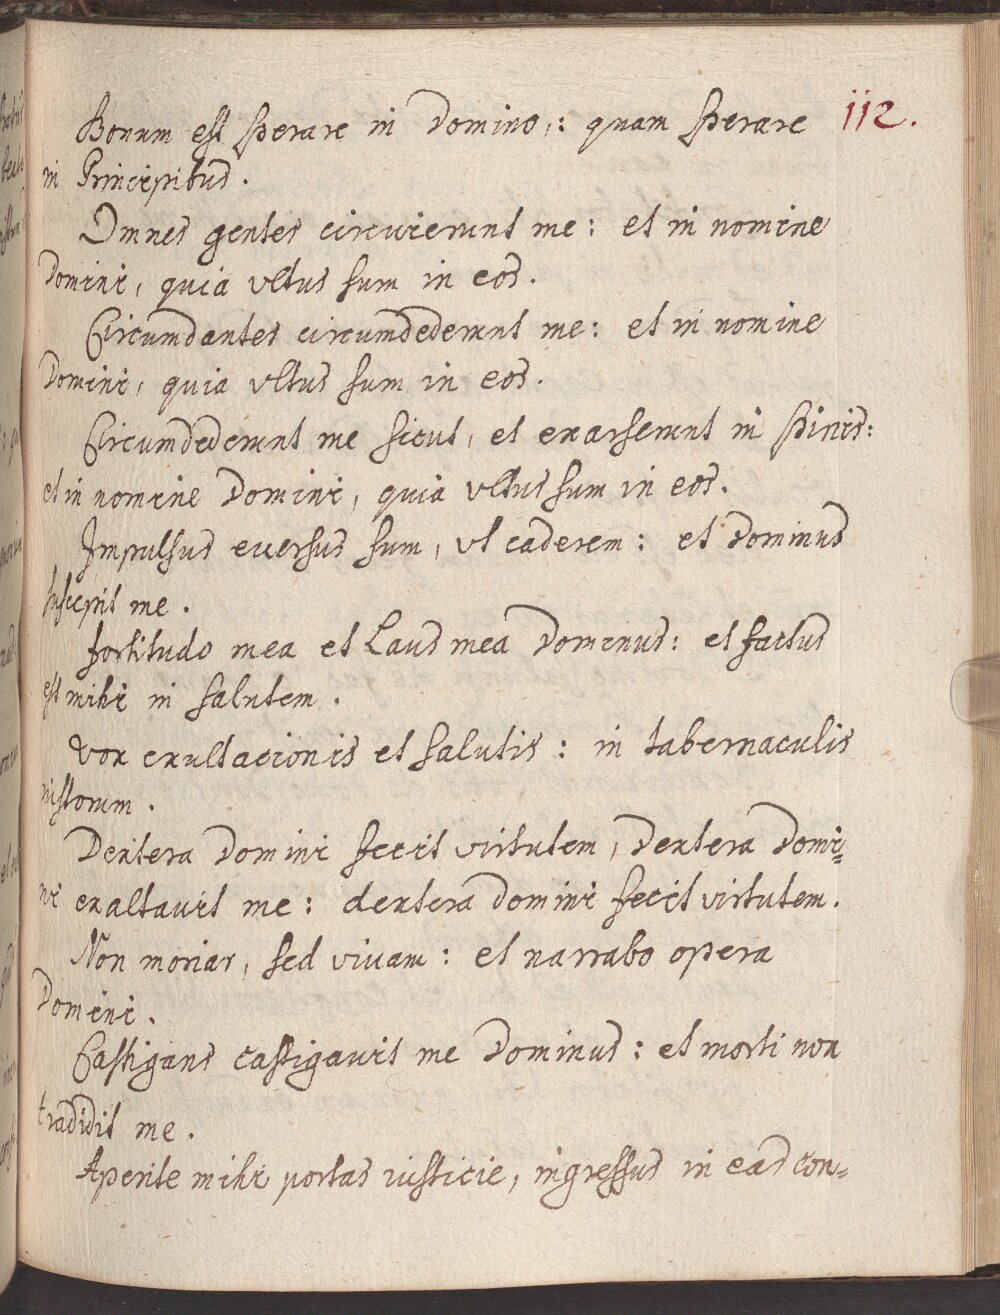 112.
Bonum est sperare in Domino,: quam sperare
in Principibus.
Omnes gentes circuierunt me: et in nomine
Domini, quia vltus sum in eos.
Circumdantes circumdederunt me: et in nomine
Domini, quia vltus sum in eos.
Circumdederunt me sicut, et exarserunt in spinis:
et in nomine Domini, quia vltus sum in eos.
Impulsus euersus sum, vt caderem: et Dominus
suscepit me.
fortitudo mea et Laus mea Dominus: et factus
est mihi in salutem.
Vox exultacionis et salutis: in tabernaculis
iustorum.
Dextera Domini fecit virtutem, Dextera Domi=
ni exaltauit me: dextera Domini fecit virtutem.
Non moriar, sed viuam: et narrabo opera
Domini.
Castigans castigauit me Dominus: et morti non
tradidit me.
Aperite mihi portas iusticie, ingressus in eas con=